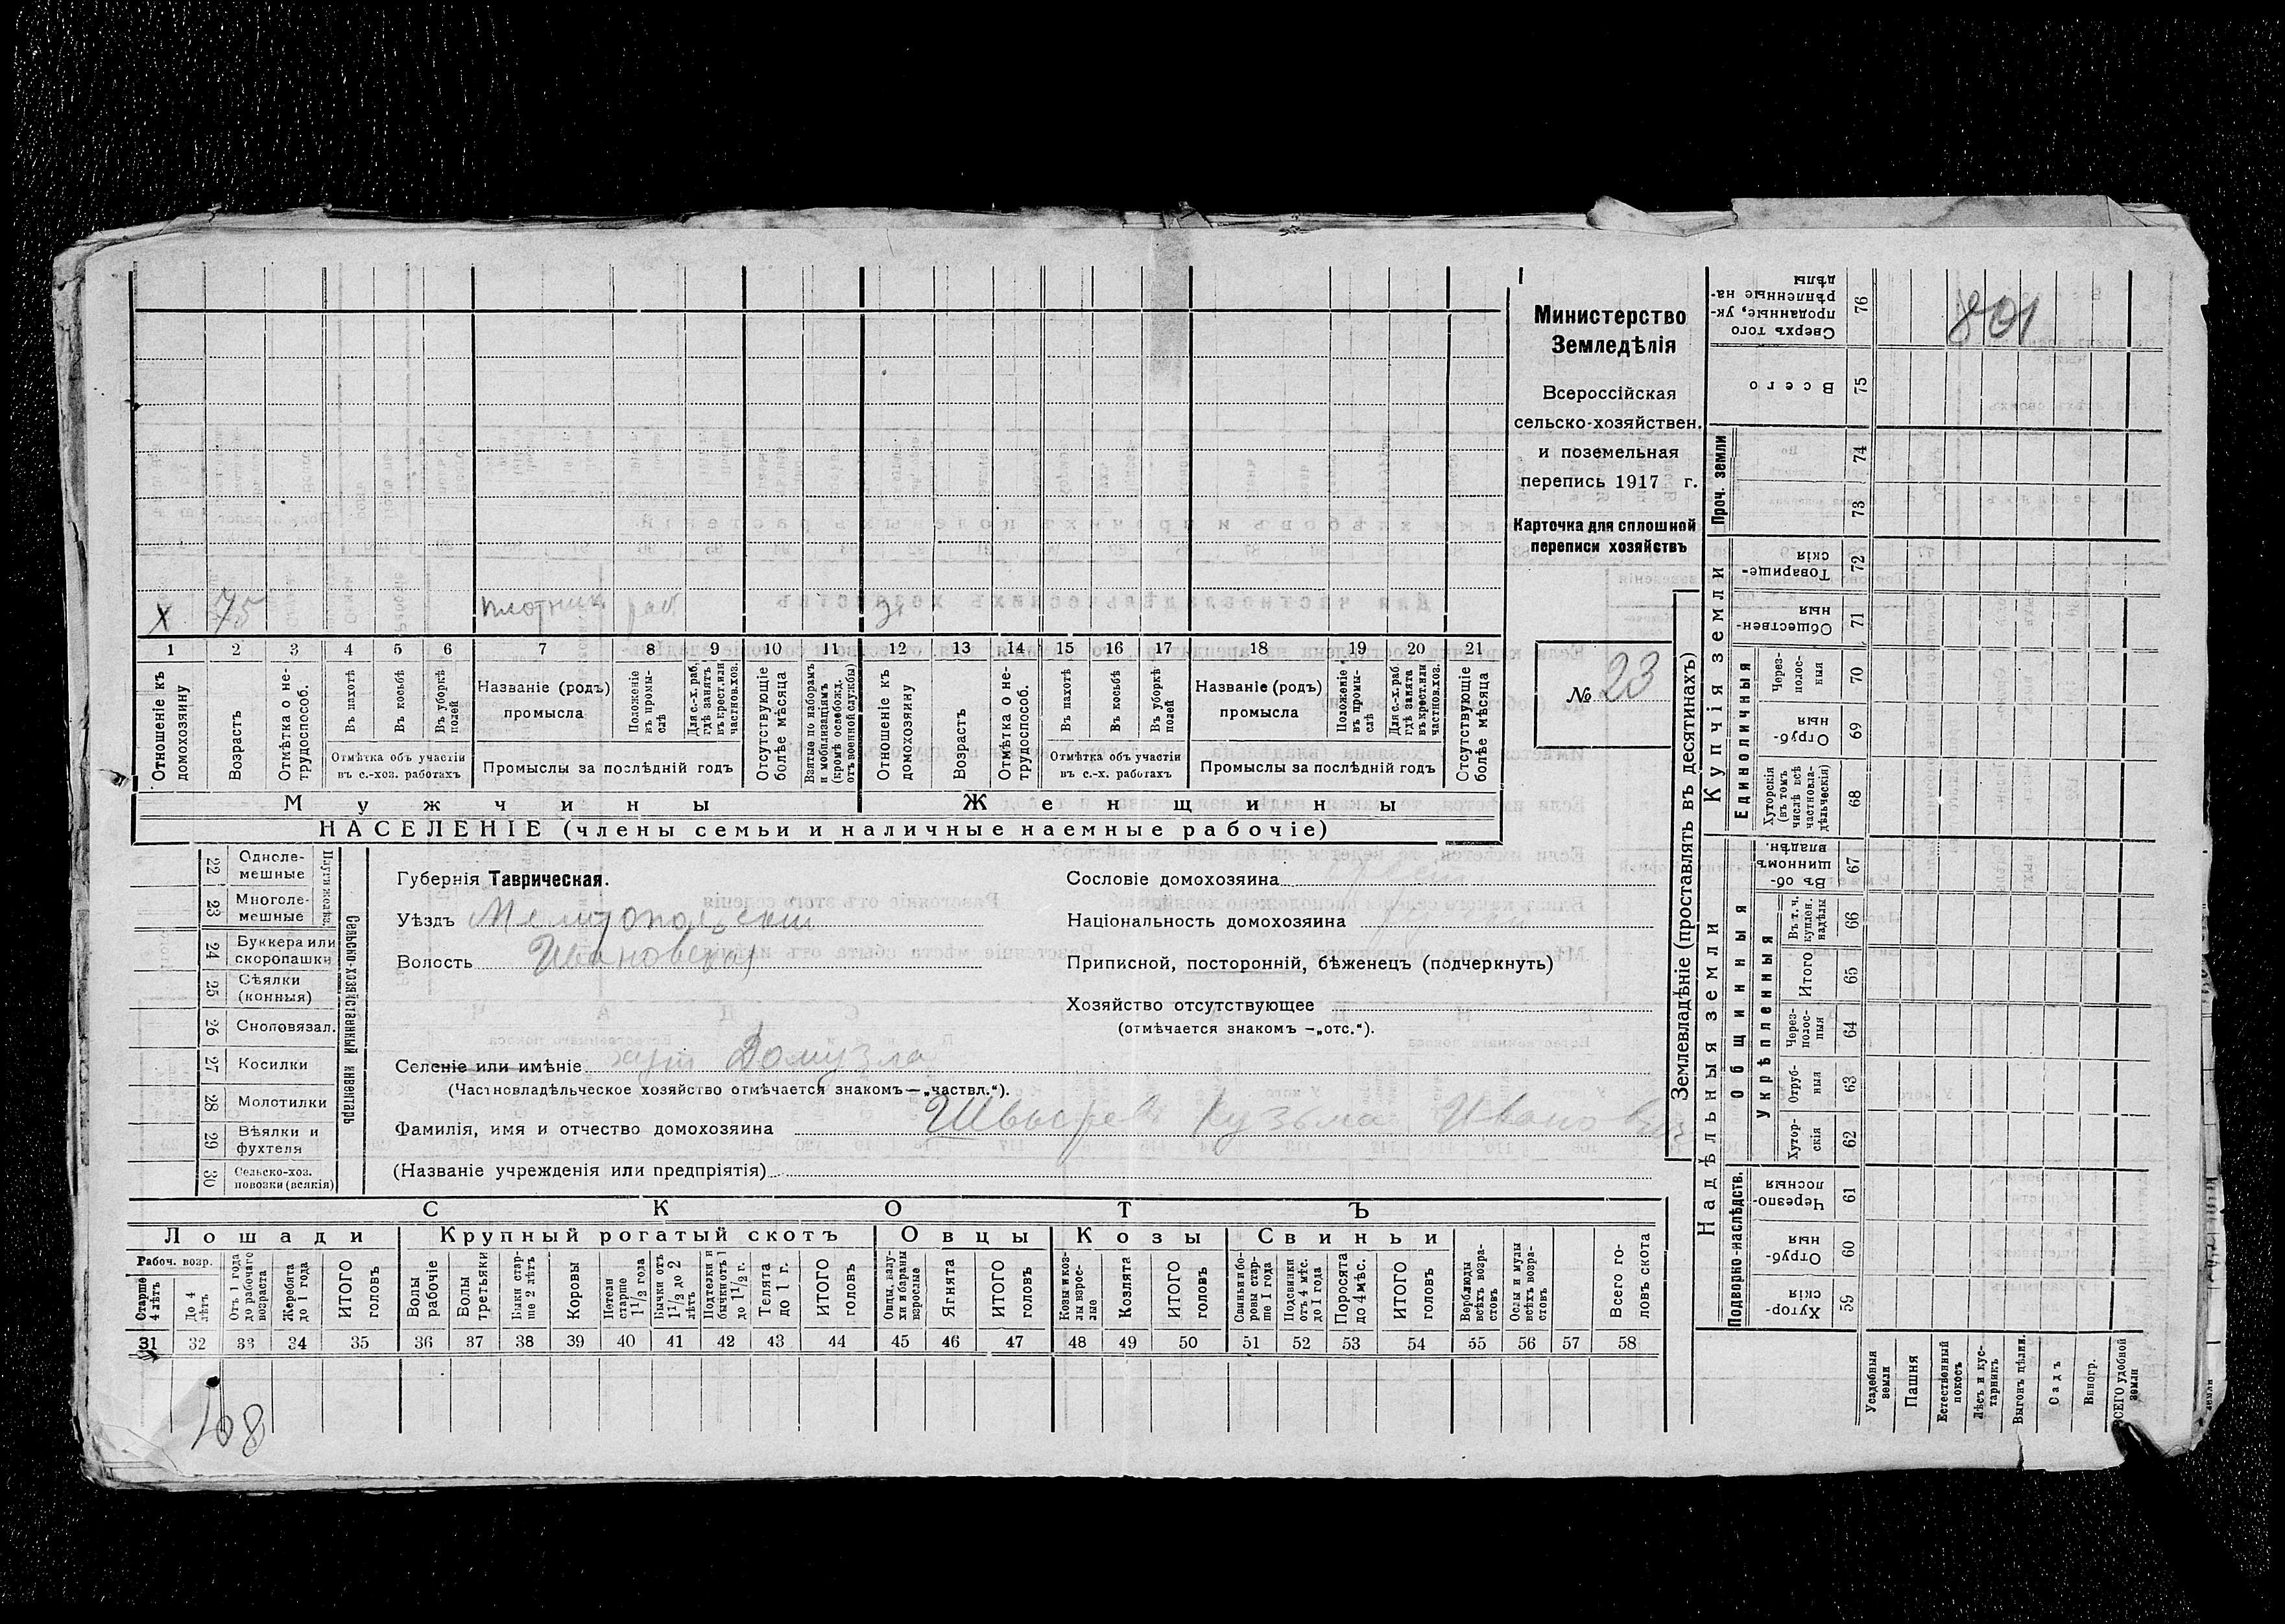 801
Министерство
Земледѣлія
Всероссійская
сельско-хозяйствен.
и поземельная
перепись 1917 г.
Карточка для сплошной
переписи хозяйствъ
№ 23
х 75 плотник раб
1 2 3 4 5 6 7 8 9 10 11 12 13 14 15 16 17 18 19 20 21
Отношеніе къ домохозяину
Возрастъ
Отмѣтка о не-трудоспособ.
Въ пахотѣ
Въ косьбѣ
Въ уборкѣ полей
Отмѣтка объ участіи
въ с.-хоз. работахъ
Названіе (родъ)
промысла
Положеніе въ промы-слѣ
Для с.-х. раб. гдѣ занятъ въ крест. или частнов. хоз.
Промыслы за послѣдній годъ
Отсутствующіе болѣе мѣсяца
Взятые по наборамъ и мобилизаціямъ (кромѣ освобожд. отъ военной службы)
Отношеніе къ домохозяину
Возрастъ
Отмѣтка о не-трудоспособ.
Въ пахотѣ
Въ косьбѣ
Въ уборкѣ полей
Отмѣтка объ участіи
въ с.-х. работахъ
Названіе (родъ)
промысла
Положеніе въ промы-слѣ
Для с.-х. раб. гдѣ занята въ крест. или частнов. хоз.
Промыслы за послѣдній годъ
Отсутствующіе болѣе мѣсяца
Мужчины Женщины
НАСЕЛЕНІЕ (члены семьи и наличные наемные рабочіе)
Сельско-хозяйственный инвентарь
22 Одноле-мешные
23 Многоле-мешные
24 Буккера или скоропашки
25 Сѣялки (конныя)
26 Сноповязал.
27 Косилки
28 Молотилки
29 Вѣялки и фухтеля
30 Сельско-хоз. повозки (всякія)
Губернія Таврическая.
Уѣздъ Мелитопольскій
Волость Ивановская
Селеніе или имѣніе хут Домузла
(Частновладѣльческое хозяйство отмѣчается знакомъ—„частвл.“).
Сословіе домохозяина
Національность домохозяина
Приписной, посторонній, бѣженецъ (подчеркнуть)
Хозяйство отсутствующее
(отмѣчается знакомъ —„отс.“).
Фамилія, имя и отчество домохозяина Швырев Кузьма Иванович
(Названіе учрежденія или предпріятія)
СКОТЪ
Лошади Крупный рогатый скотъ Овцы Козы Свиньи
Рабоч. возр.
Старше 4 лѣтъ
До 4 лѣтъ
Отъ 1 года до рабочаго возраста
Жеребята до 1 года
ИТОГО головъ
Волы рабочіе
Волы третьяки
Быки стар-ше 2 лѣтъ
Коровы
Нетели старше 1 1/2 года
Бычки отъ 1 1/2 до 2 лѣтъ
Подтелки и бычки отъ 1 до 1 1/2 г.
Телята до 1 г.
ИТОГО головъ
Овцы, валу-хи и бараны взрослые
Ягнята
ИТОГО головъ
Козы и коз-лы взрос-лые
Козлята
ИТОГО головъ
Свиньи и бо-ровы стар-ше 1 года
Подсвинки отъ 4 мѣс. до 1 года
Поросята до 4 мѣс.
ИТОГО головъ
Верблюды всѣхъ возра-стовъ
Ослы и мулы всѣхъ возра-стовъ
Всего го-ловъ скота
31 32 33 34 35 36 37 38 39 40 41 42 43 44 45 46 47 48 49 50 51 52 53 54 55 56 57 58
108
Землевладѣніе (проставлять въ десятинахъ)
Купчія земли
Надѣльныя земли
Сверхъ того проданные, ук-рѣпленные на-дѣлы 76
Всего 75
Проч. земли
74
73
Товарище-скія 72
Обществен-ныя 71
Единоличныя
Через-полос-ныя 70
Отруб-ныя 69
Хуторскія (въ томъ числѣ всѣ частновла-дѣльческія) 68
Общинныя
Въ об-щинномъ владѣн. 67
Укрѣпленныя
Въ т. ч. куплен. надѣлы 66
Итого 65
Через-полос-ныя 64
Отруб-ныя 63
Хутор-скія 62
Подворно-наслѣдств.
Черезпо-лосныя 61
Отруб-ныя 60
Хутор-скія 59
Усадебныя земли
Пашня
Естественный покосъ
Лѣсъ и кус-тарникъ
Выгонъ цѣлин.
Садъ
Виногр.
ВСЕГО удобной земли